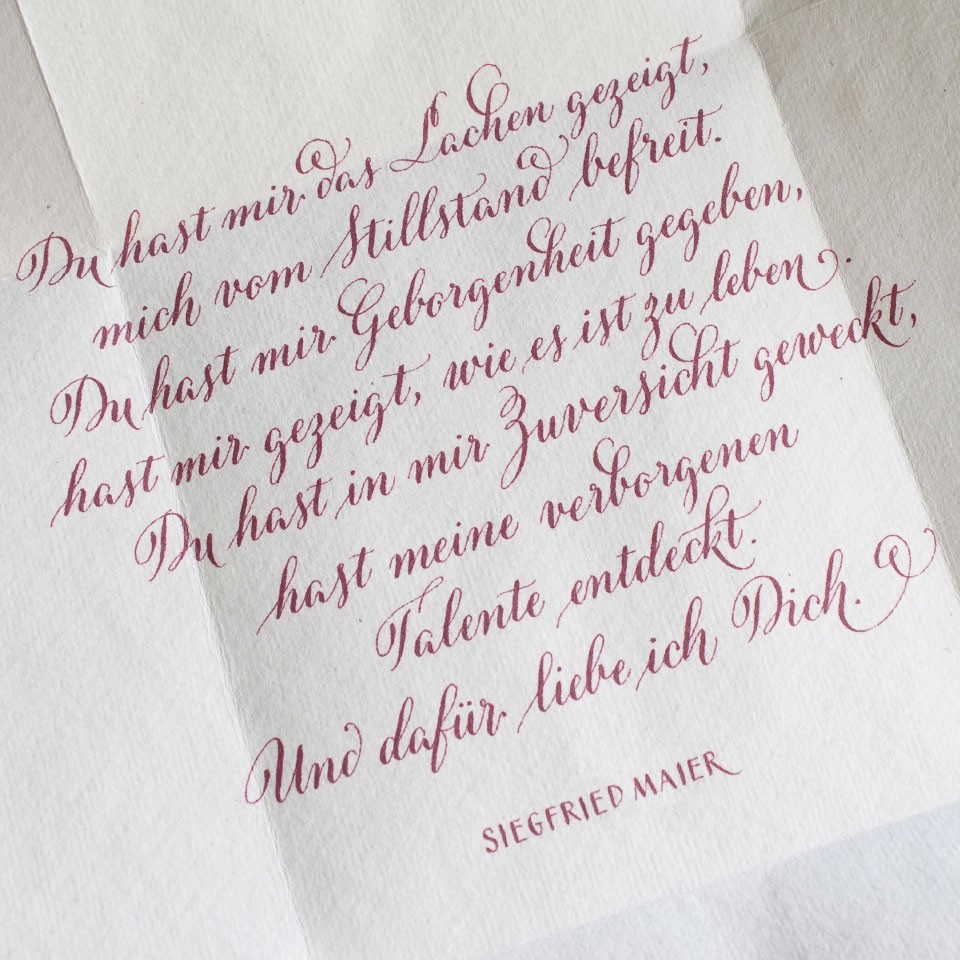 Du hast mir das Lachen gezeigt,
mich vom Stillstand befreit.
Du hast mir Geborgenheit gegeben,
hast mir gezeigt, wie es ist zu leben.
Du hast in mir Zuversicht geweckt,
hast meine verborgenen
Talente entdeckt.
Und dafür liebe ich Dich.
SIEGFRIED MAIER